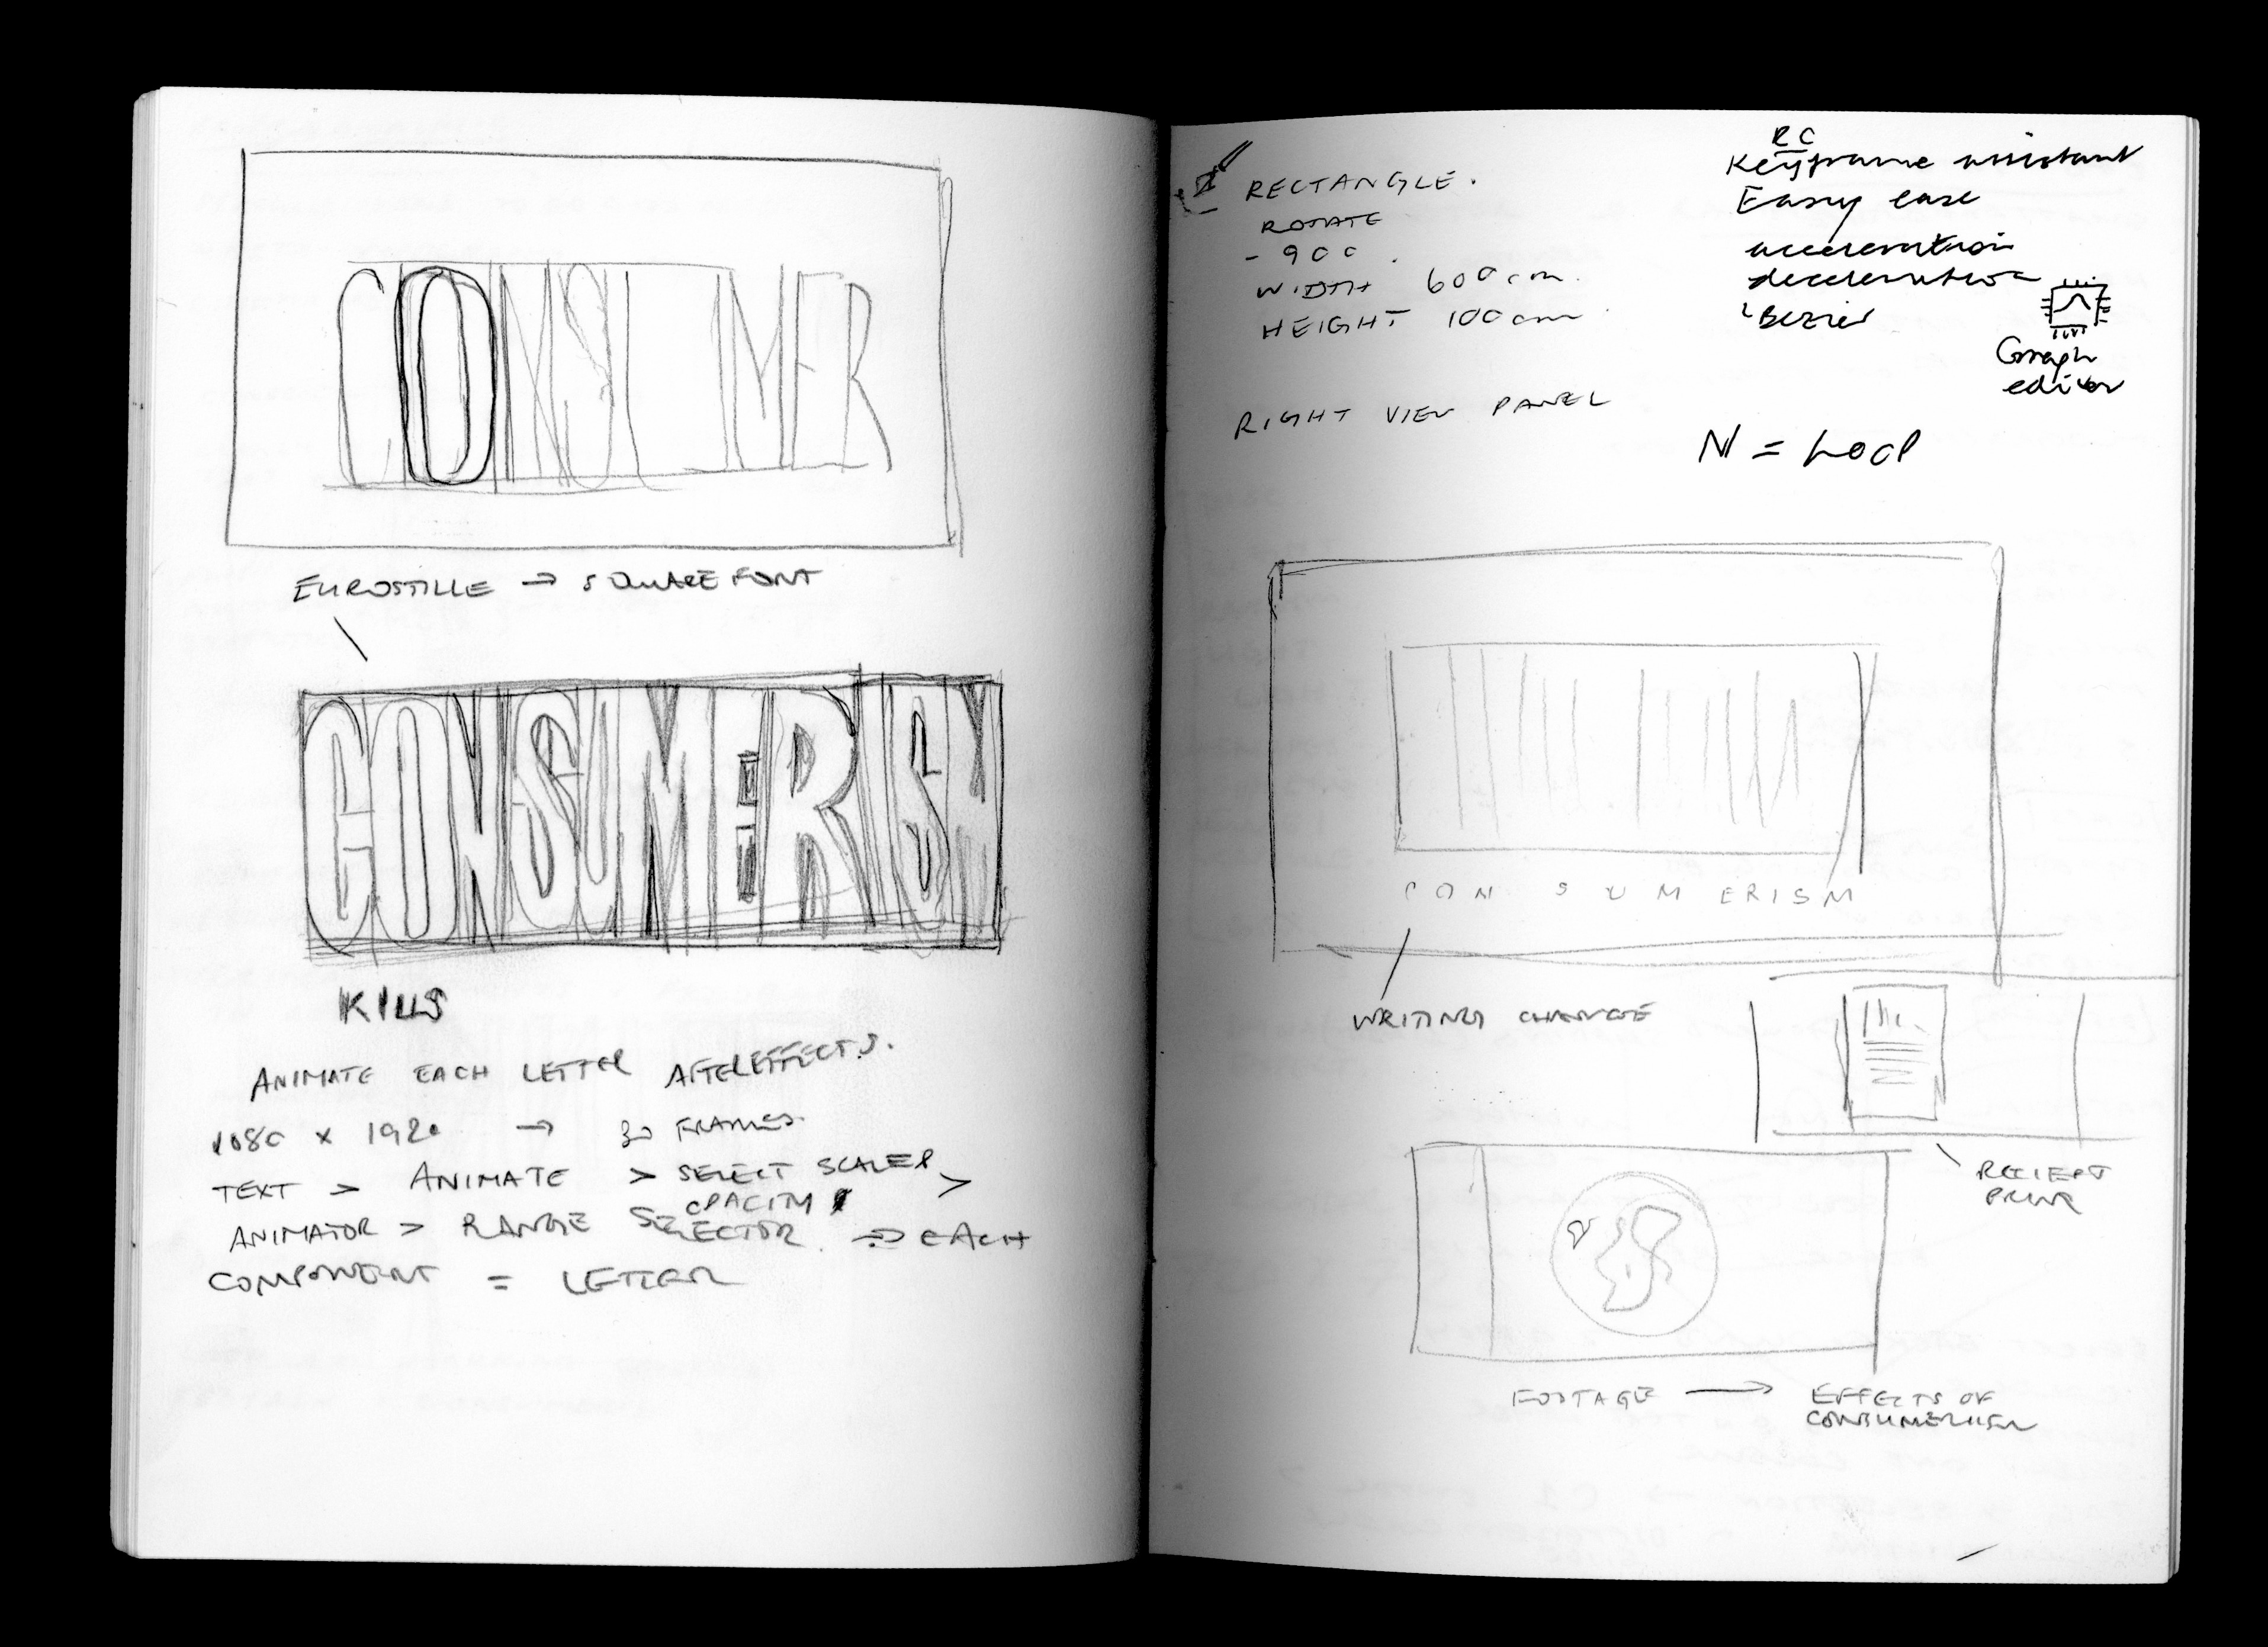 CONSUMER
EUROSTILLE → SQUARE FONT
CONSUMERISM
KILLS
ANIMATE EACH LETTER AFTEREFFECTS.
1080 x 1920 → 30 FRAMES.
TEXT > ANIMATE > SELECT SCALER >
OPACITY
ANIMATOR > RANGE SELECTOR. → EACH
COMPONENT = LETTER
RECTANGLE.
ROTATE
- 900.
WIDTH 600cm.
HEIGHT 100cm.
RIGHT VIEW PANEL
RC
Keyframe assistant
Easy ease
acceleration
deceleration
Bezier
Graph
editor
N =
CONSUMERISM
WRITING CHANGE
RECIEPT
FOOTAGE → EFFECTS OF
CONSUMERISM